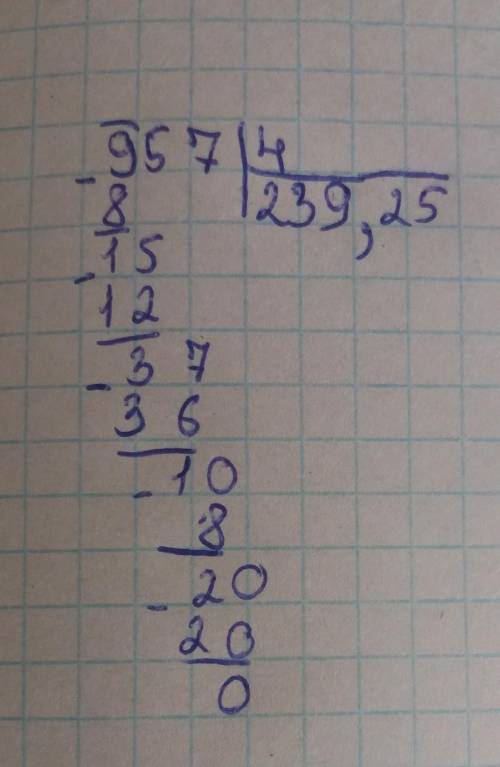 957 4
- 239,25
8
- 15
12
- 37
36
- 10
8
- 20
20
0